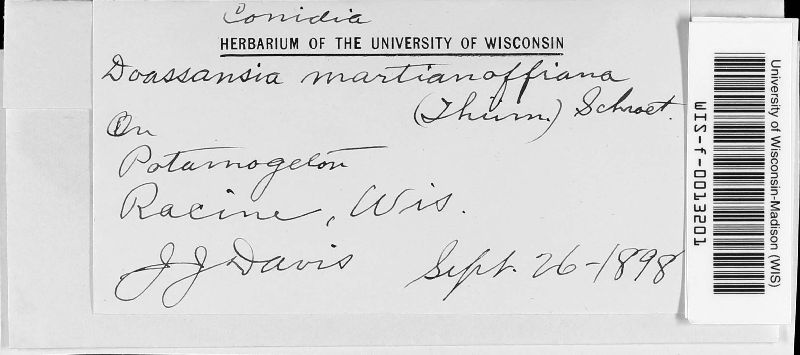 Conidia
HERBARIUM OF THE UNIVERSITY OF WISCONSIN
Doassansia martianoffiana
(Thüm.) Schroet.
On
Potamogeton
Racine, Wis.
J J Davis Sept. 26-1898
University of Wisconsin-Madison (WIS)
WIS-f-0013201